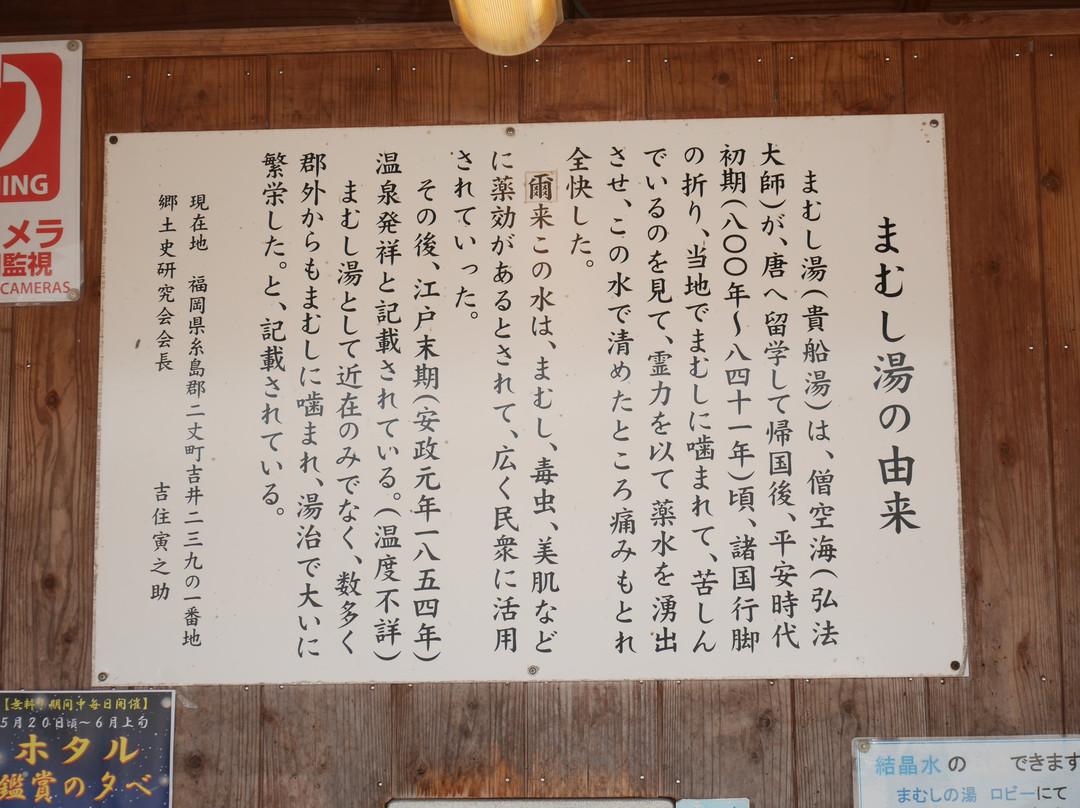 まむし湯の由来
まむし湯(貴船湯)は、僧空海(弘法
大師)が、唐へ留学して帰国後、平安時代
初期(八〇〇年〜八四十一年)頃、諸国行脚
の折り、当地でまむしに噛まれて、苦しん
でいるのを見て、霊力を以て薬水を湧出
させ、この水で清めたところ痛みもとれ
全快した。
爾来この水は、まむし、毒虫、美肌など
に薬効があるとされて、広く民衆に活用
されていった。
その後、江戸末期(安政元年一八五四年)
温泉発祥と記載されている。(温度不詳)
まむし湯として近在のみでなく、数多く
郡外からもまむしに噛まれ、湯治で大いに
繁栄した。と、記載されている。
現在地 福岡県糸島郡二丈町吉井二三九の一番地
郷土史研究会会長 吉住寅之助
メラ
監視
CAMERAS
【無料】期間中毎日開催】
5月20日頃〜6月上旬
ホタル
鑑賞の夕べ
結晶水の できます
まむしの湯 ロビーにて